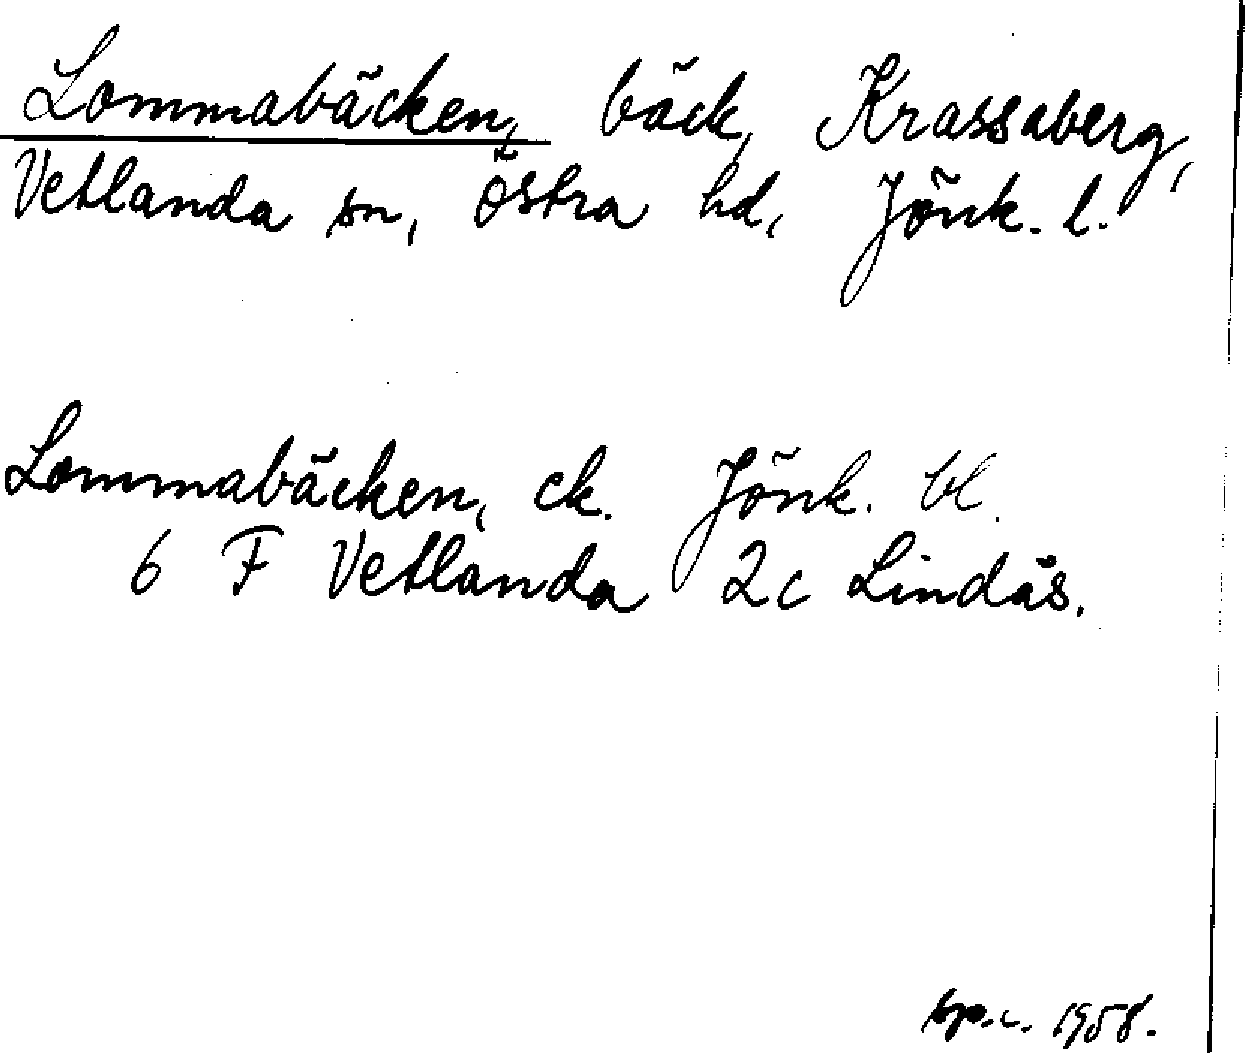 Lommabäcken, bäck, Krassaberg,
Vetlanda sn, Östra hd, Jönk. l.
Lommabäcken, ek. Jönk. bl.
6 F Vetlanda 2c Lindås.
1958.